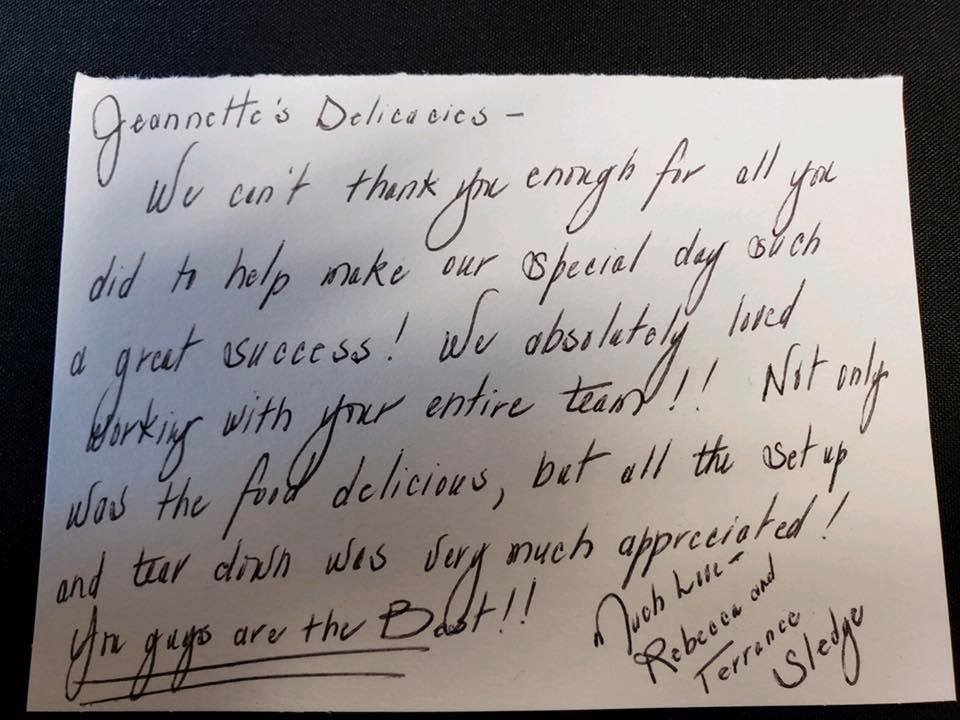 Jeannette's Delicacies -
We can't thank you enough for all you
did to help make our special day such
a great success! We absolutely loved
working with your entire team!! Not only
was the food delicious, but all the set up
and tear down was very much appreciated!
You guys are the Best!!
Much Love -
Rebecca and
Terrance
Sledge